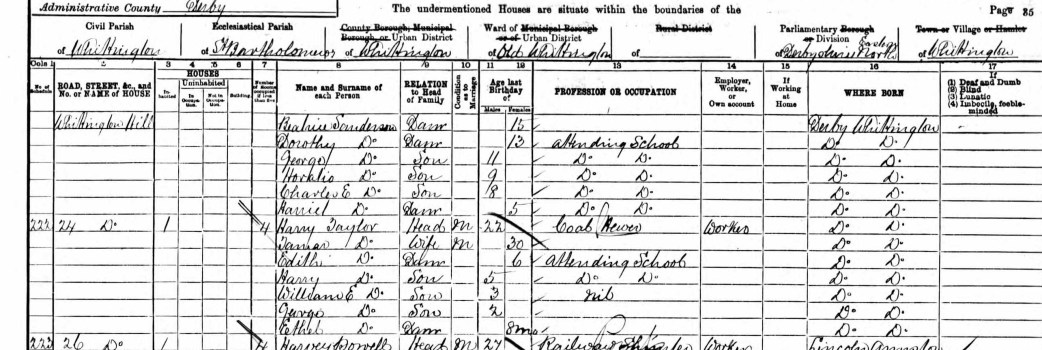 Administrative County Derby The undermentioned Houses are situate within the boundaries of the Page 35
Civil Parish Ecclesiastical Parish County Borough, Municipal Borough, or Urban District Ward of Municipal Borough or of Urban District Rural District Parliamentary Borough or Division Town or Village or Hamlet
of Whittington of St Bartholomews of Whittington of Old Whittington of of of Whittington
Cols 1 2 3 4 5 6 7 8 9 10 11 12 13 14 15 16 17
No. of Schedule ROAD, STREET, &c., and No. or NAME of HOUSE HOUSES Inhabited Uninhabited In Occupation Not in Occupation Building Name and Surname of each Person RELATION to Head of Family Condition as to Marriage Age last Birthday of Males Females PROFESSION OR OCCUPATION Employer, Worker, or Own account If Working at Home WHERE BORN If (1) Deaf and Dumb (2) Blind (3) Lunatic (4) Imbecile, feeble-minded
Whittington Hill Beatrice Sanderson Daur 15 Derby Whittington
Dorothy Do Daur 13 attending School Do Do
George Do Son 11 Do Do Do Do
Horatio Do Son 9 Do Do Do Do
Charles E Do Son 8 Do Do Do Do
Harriet Do Daur 5 Do Do Do Do
222 24 Do 1 4 Harry Taylor Head M 22 Coal Hewer Worker Do Do
Tamar Do Wife M 30 Do Do
Edith Do Daur 6 Attending School Do Do
Harry Do Son 5 Do Do Do Do
William E Do Son 3 nil Do Do
George Do Son 2 Do Do
Ethel Do Daur 8mo Do Do
223 26 Do 1 4 Harvey Head M 27 Railway Worker Lincoln